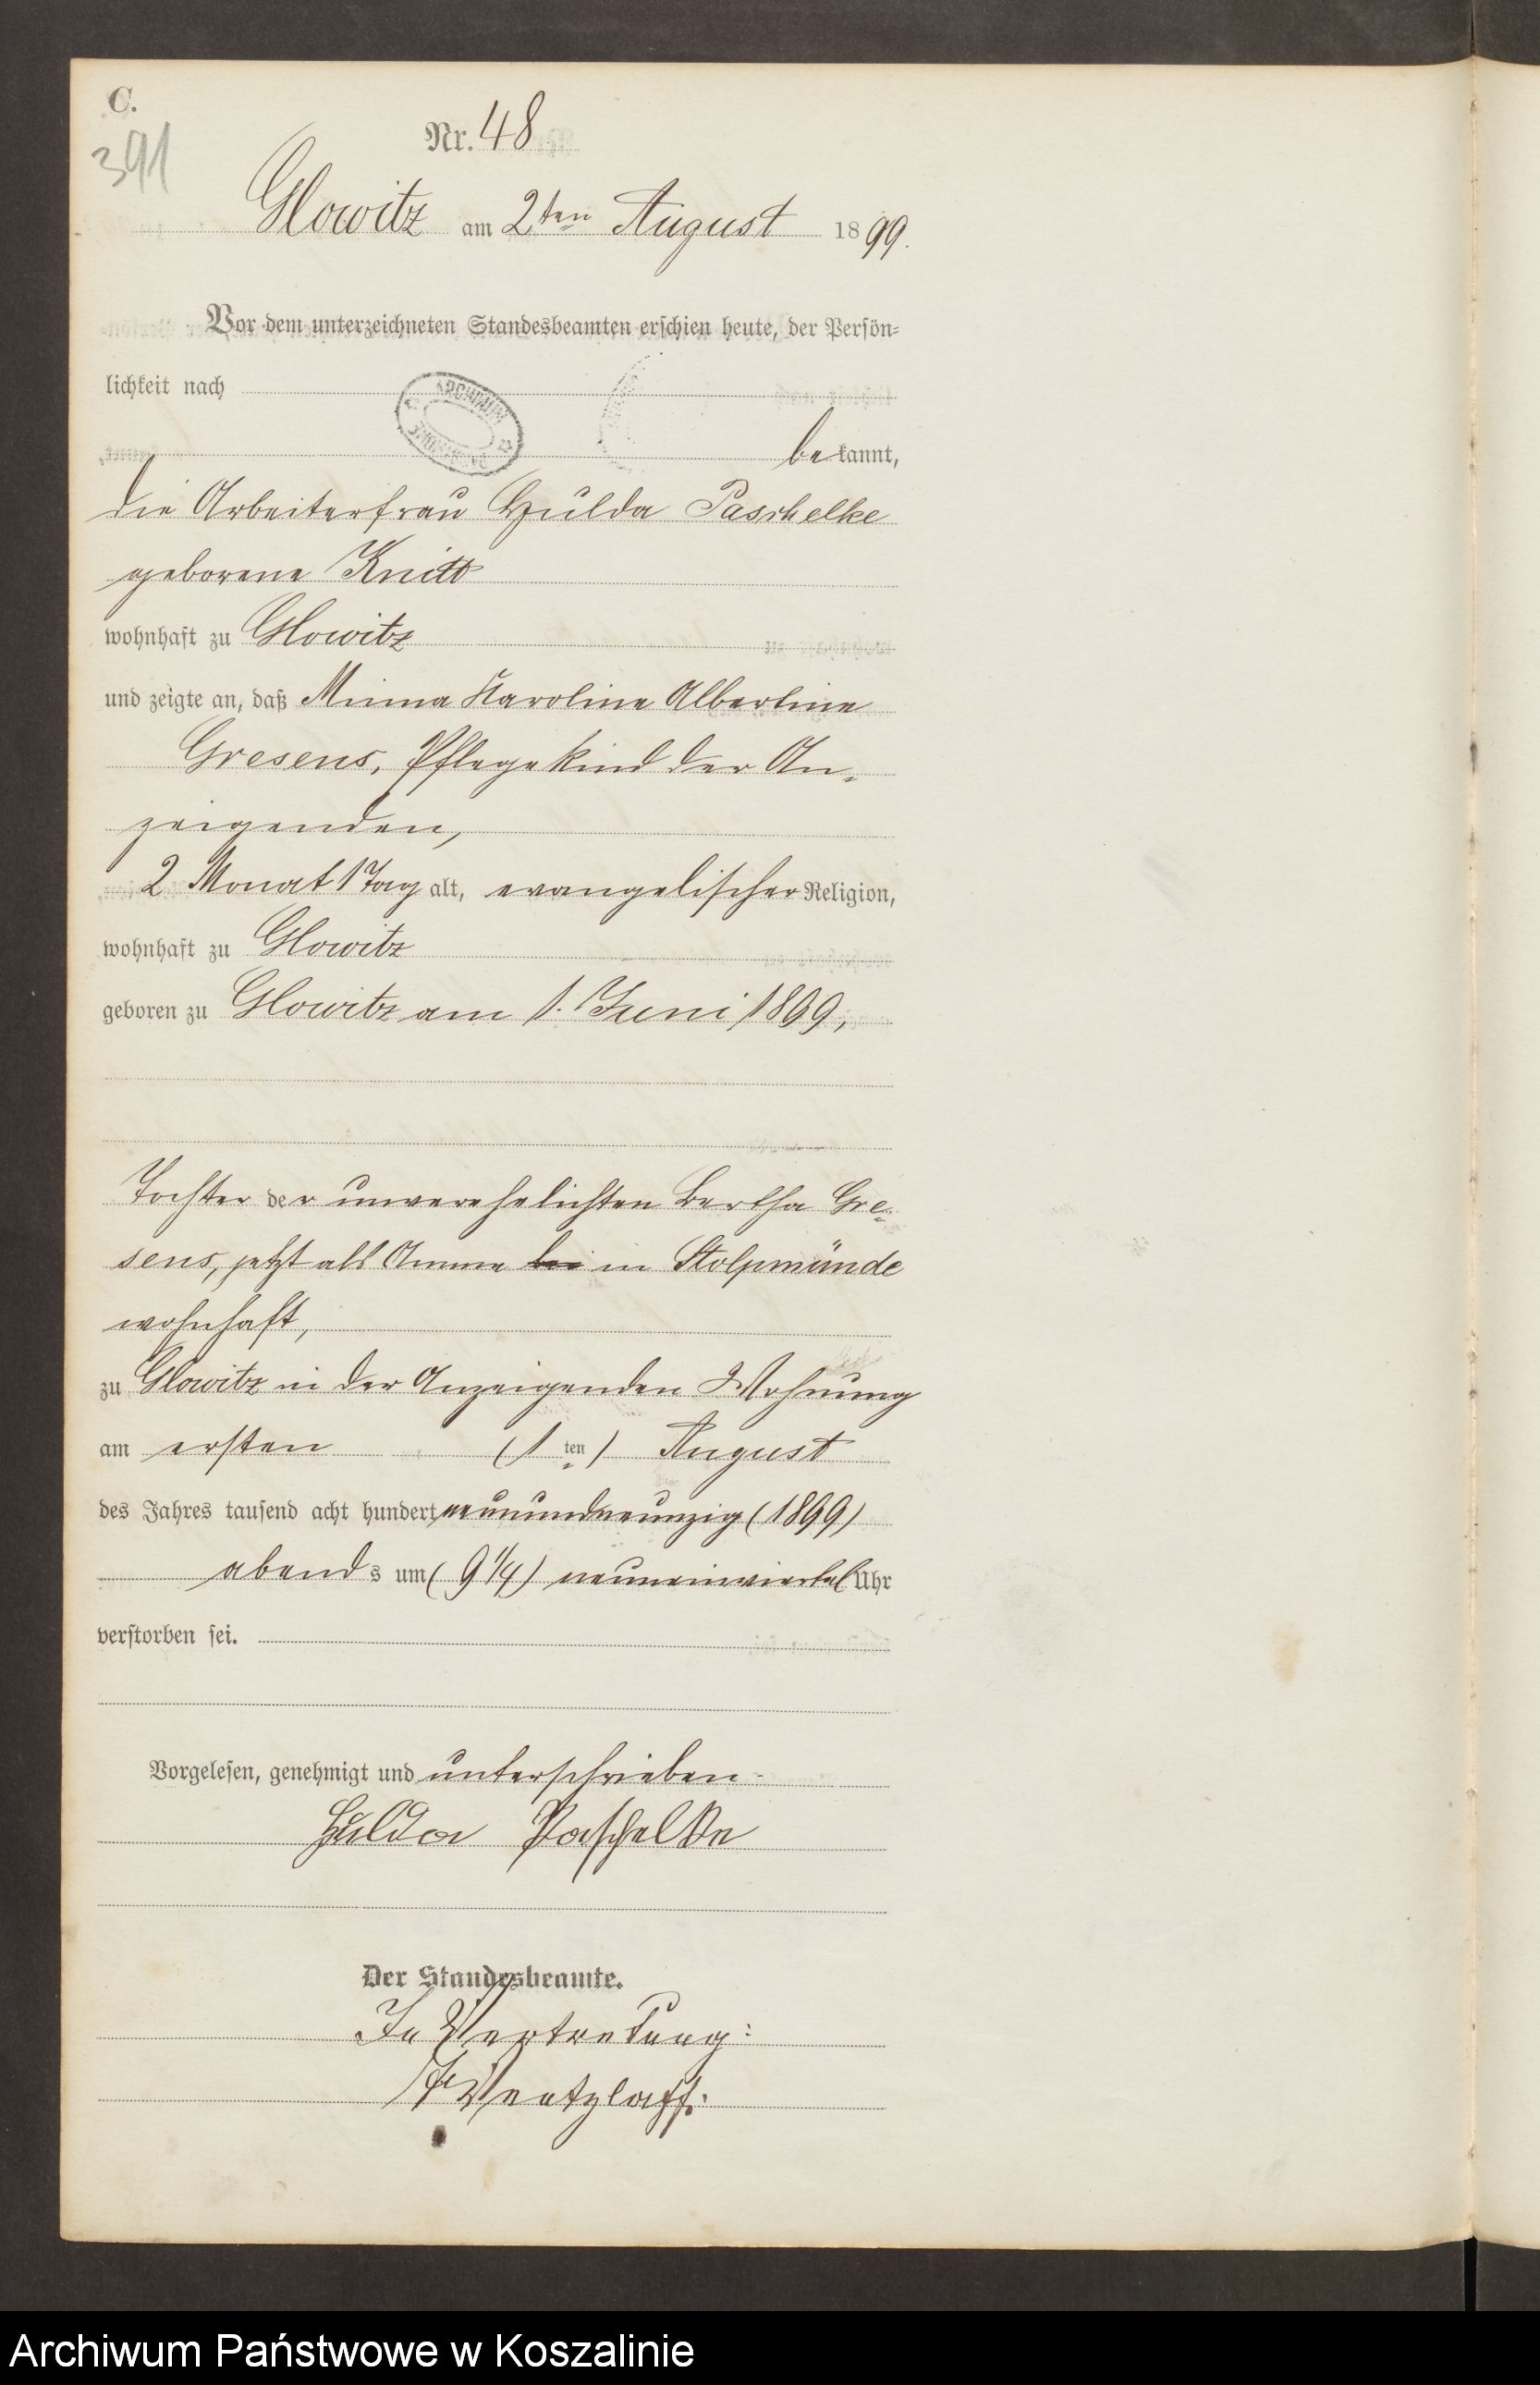 C.
391
Nr. 48
Glowitz am 2ten August 1899.
Vor dem unterzeichneten Standesbeamten erschien heute, der Persön-
lichkeit nach
bekannt,
die Arbeiterfrau Hulda Paschelke
geborene Knitt
wohnhaft zu Glowitz
und zeigte an, daß Minna Karoline Albertine
Gresens, Pflegekind der An-
zeigenden,
2 Monat 1 Tag alt, evangelischer Religion,
wohnhaft zu Glowitz
geboren zu Glowitz am 1. Juni 1899,
Tochter der unverehelichten Bertha Gre-
sens, jetzt als Amme bei in Stolpmünde
wohnhaft,
zu Glowitz in der Anzeigenden Wohnung
am ersten (1ten) August
des Jahres tausend acht hundert neunundneunzig (1899)
abends um (9 1/4) neuneinviertel Uhr
verstorben sei.
Vorgelesen, genehmigt und unterschrieben.
Hulda Paschelke
Der Standesbeamte.
In Vertretung:
Ventzlaff.
Archiwum Państwowe w Koszalinie